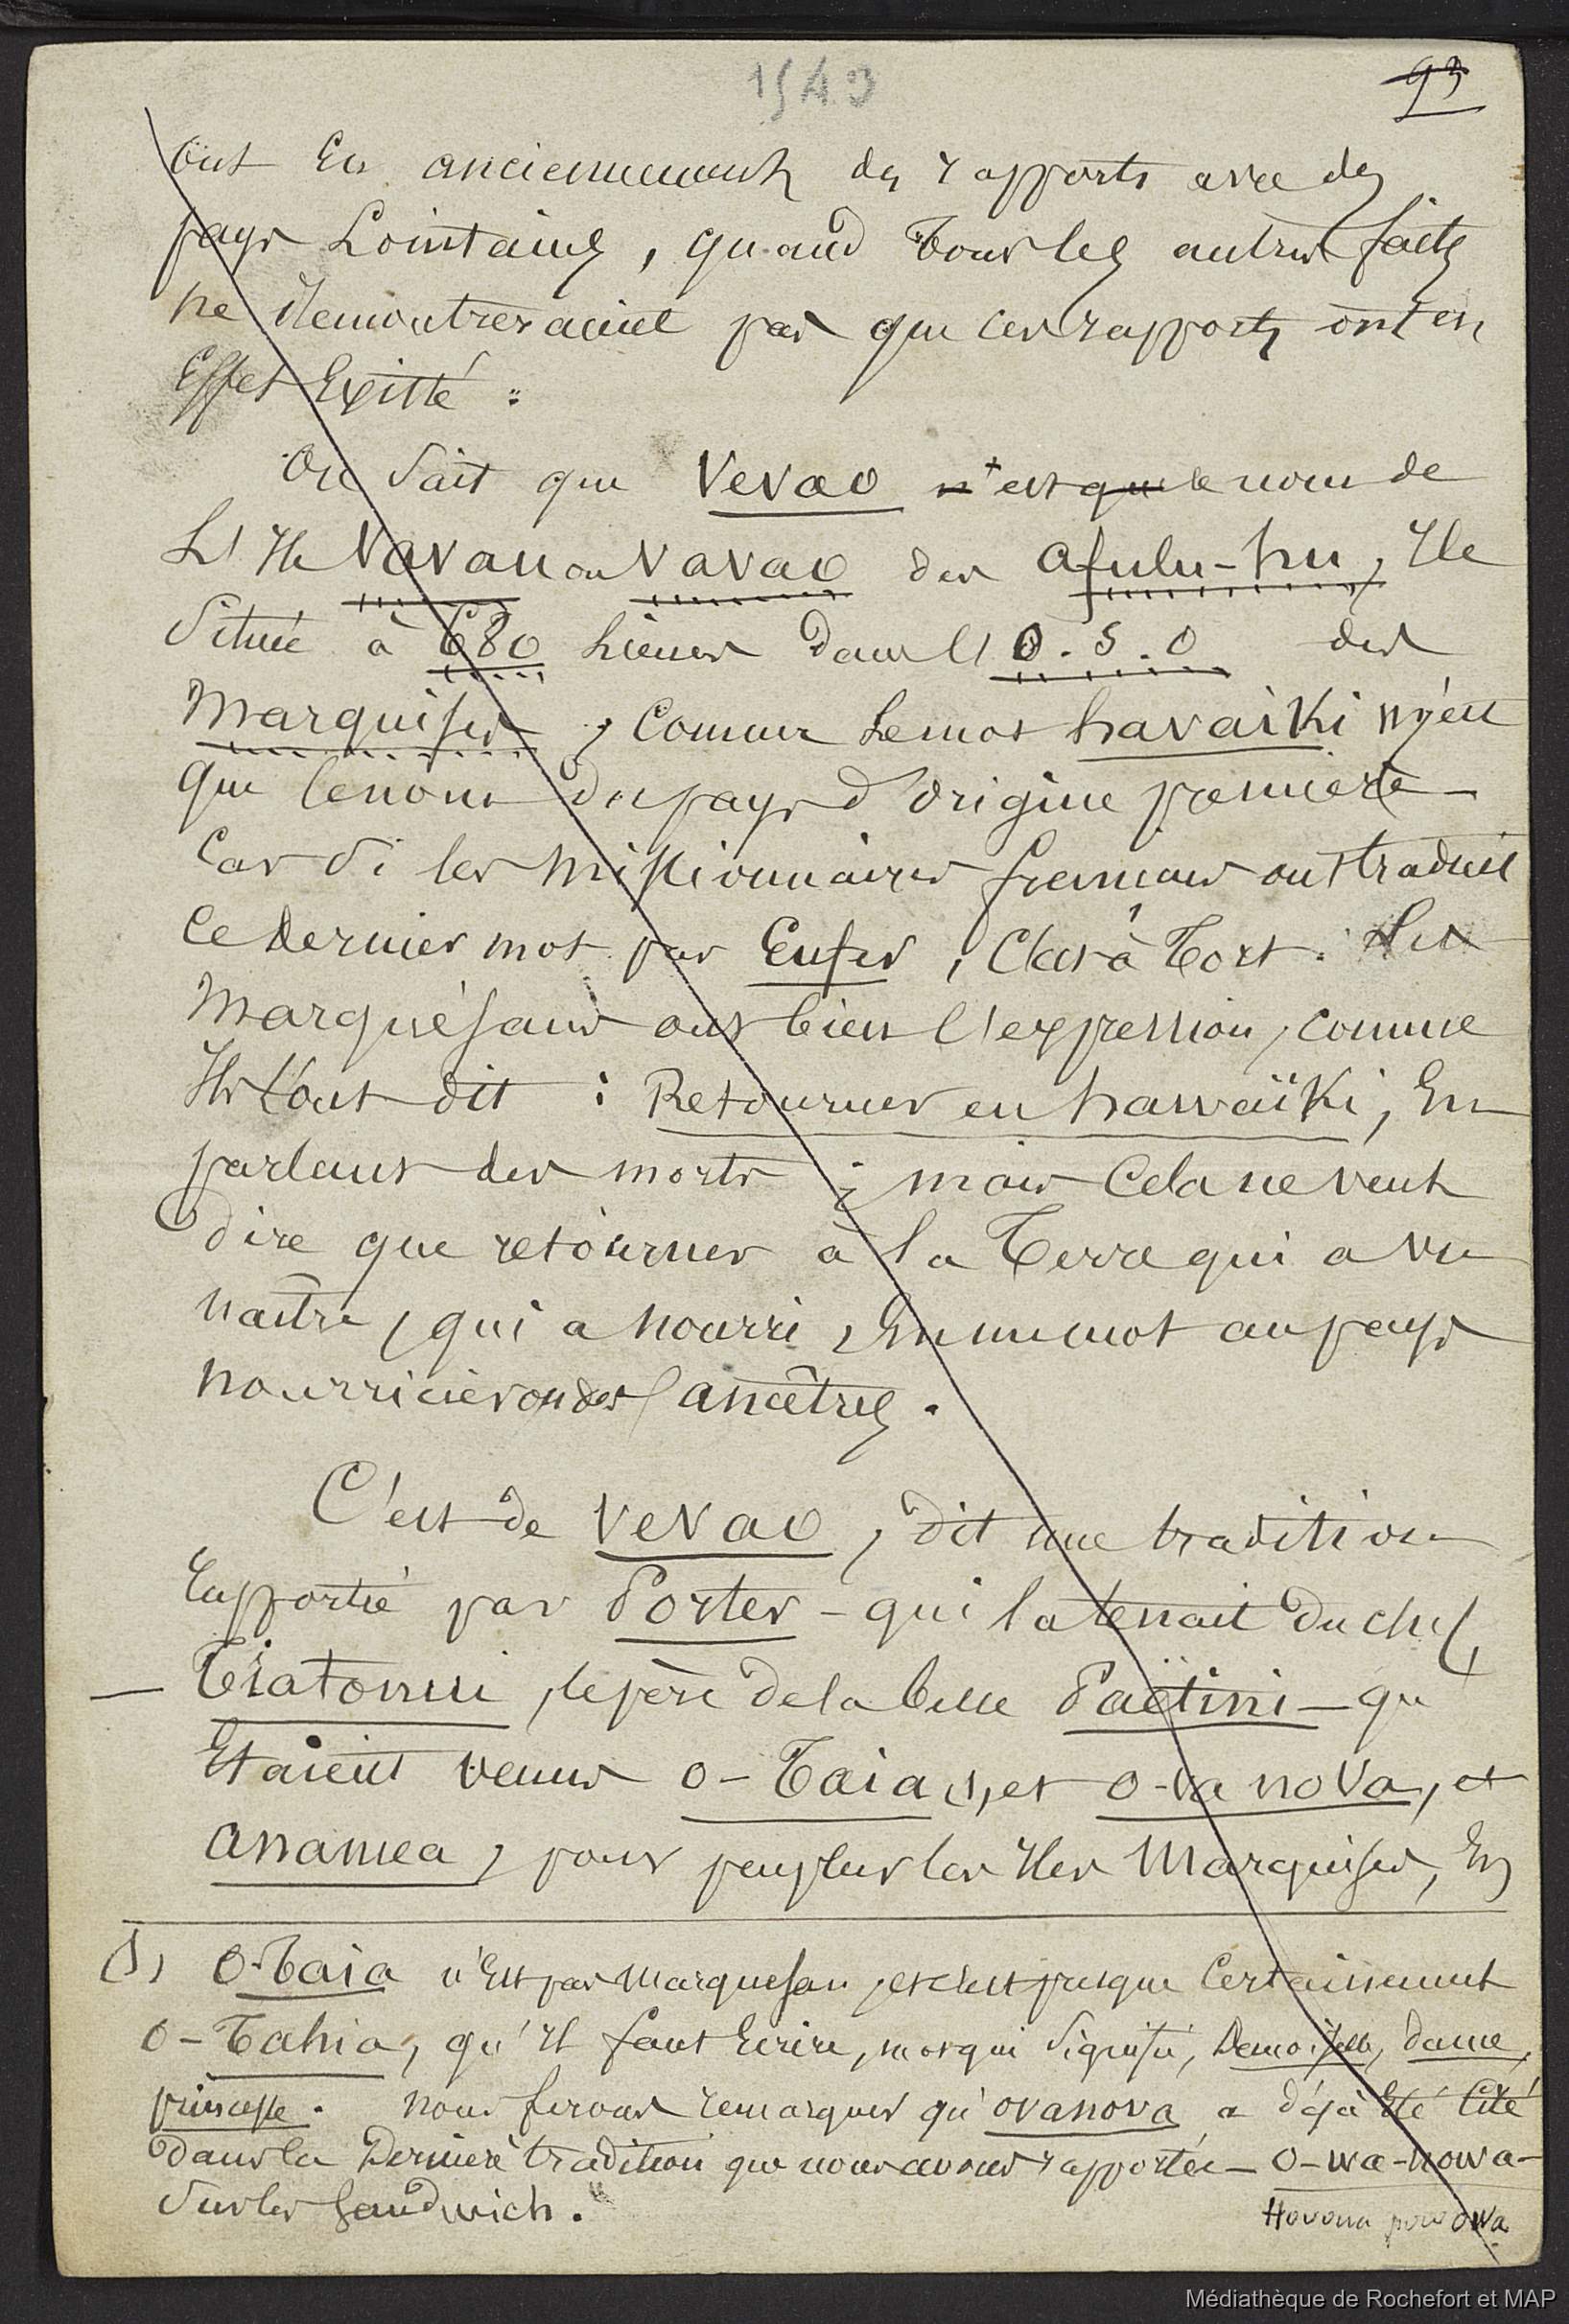 1543
93
ont Eu anciennement des rapports avec des
pays Lointains, quand Tous les autres faits
ne Demontreraient pas que ces rapports ont en
Effet Existé :
On Sait que Vevao n'est que le nom de
L'Ile Vavau ou Vavao des afulu-hu, Ile
Située à 680 Lieues dans l'O.S.O des
Marquises, Comme Le mot havaïki n'est
que le nom du pays d'origine premiere -
Car Si les Missionnaires français ont traduit
Ce Dernier mot par Enfer, C'est à Tort. Les
Marquésans ont bien l'expression, comme
Ils l'ont dit : Retourner en hawaïki, En
parlant des morts ; mais Cela ne veut
dire que retourner à la Terre qui a vu
naître, qui a nourri, En un mot au pays
nourricier ou des ancêtres.
C'est de Vevao, dit une tradition
rapportée par Porter - qui la tenait du chef
- Tiatonui, le père de la belle Paëtini - qu'
Etaient venus O-Taia (1) et O-va nova, et
anamea, pour peupler les Iles Marquises, En
(1) O-Taia n'Est pas Marquesan, et c'est presque Certainement
O-Tahia, qu'Il faut Ecrire, mot qui Signifie, Demoiselle, dame,
princesse. nous ferons remarquer qu'ovanova a déjà Eté Cité
Dans la Dernière tradition que nous avons rapportée - O-wa-nowa -
Sur les Sandwich.
Hovova pour owa